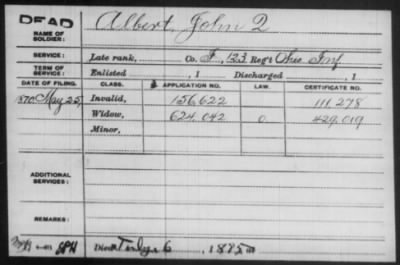 DEAD
NAME OF SOLDIER: Albert, John Q
SERVICE: Late rank, Co. F, 123 Reg't Ohio Inf
TERM OF SERVICE: Enlisted , 1 Discharged , 1
DATE OF FILING. CLASS. APPLICATION NO. LAW. CERTIFICATE NO.
1870 May 25, Invalid, 156,622 111,278
Widow, 624,042 429,019
Minor,
ADDITIONAL SERVICES:
REMARKS:
Died 6, 1895